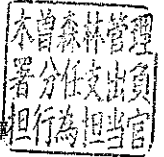 木曽森林管理
署分任支出負
担行為担当官